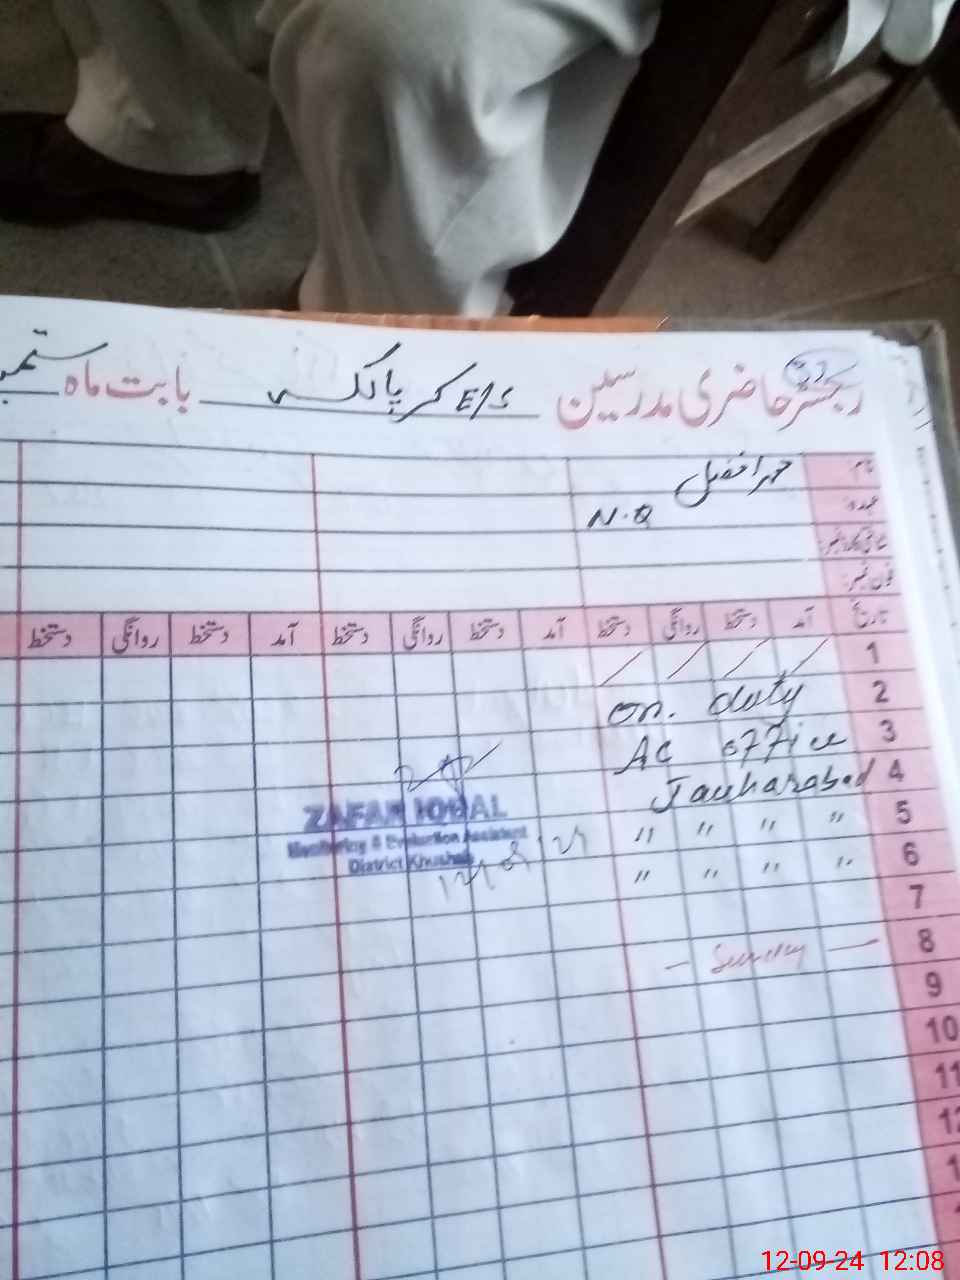 رجسٹر حاضری مدرسین E/S کر پالکہ بابت ماہ ستمبر
نام: محمد افضل
عہدہ: N.Q
شناختی کارڈ نمبر:
فون نمبر:
تاریخ آمد دستخط روانگی دستخط آمد دستخط روانگی دستخط آمد دستخط روانگی دستخط
1
2 on. duty
3 AC office
4 Jauharabad
5 " " " "
6 " " " "
7
8 — Sunday —
9
10
11
ZAFAR IQBAL
Monitoring & Evaluation Assistant
District Khushab
12-09-24 12:08